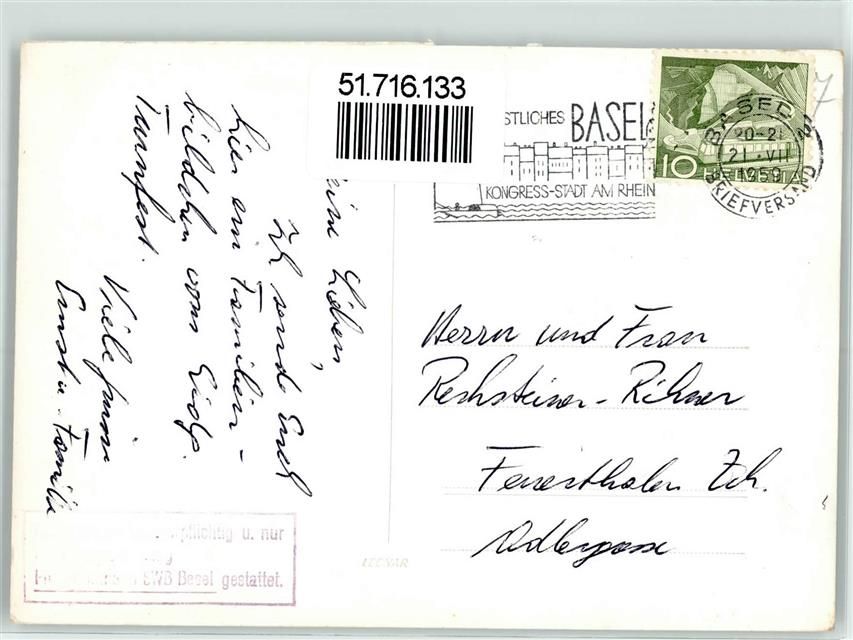 51.716.133
STLICHES BASEL
KONGRESS-STADT AM RHEIN
10 HELVETIA
BASEL
20-21
21.VII
1959
BRIEFVERSAND
7
eine Lieben,
Ich send Euch
hier ein Familien-
bildchen vom Eidg.
Turnfest.
Viele
Ernst u. Familie
Herrn und Frau
Rechsteiner-Rihner
Feuerthalen Zch.
Adlergasse
pflichtig u. nur
SWB Basel gestattet.
LEONAR